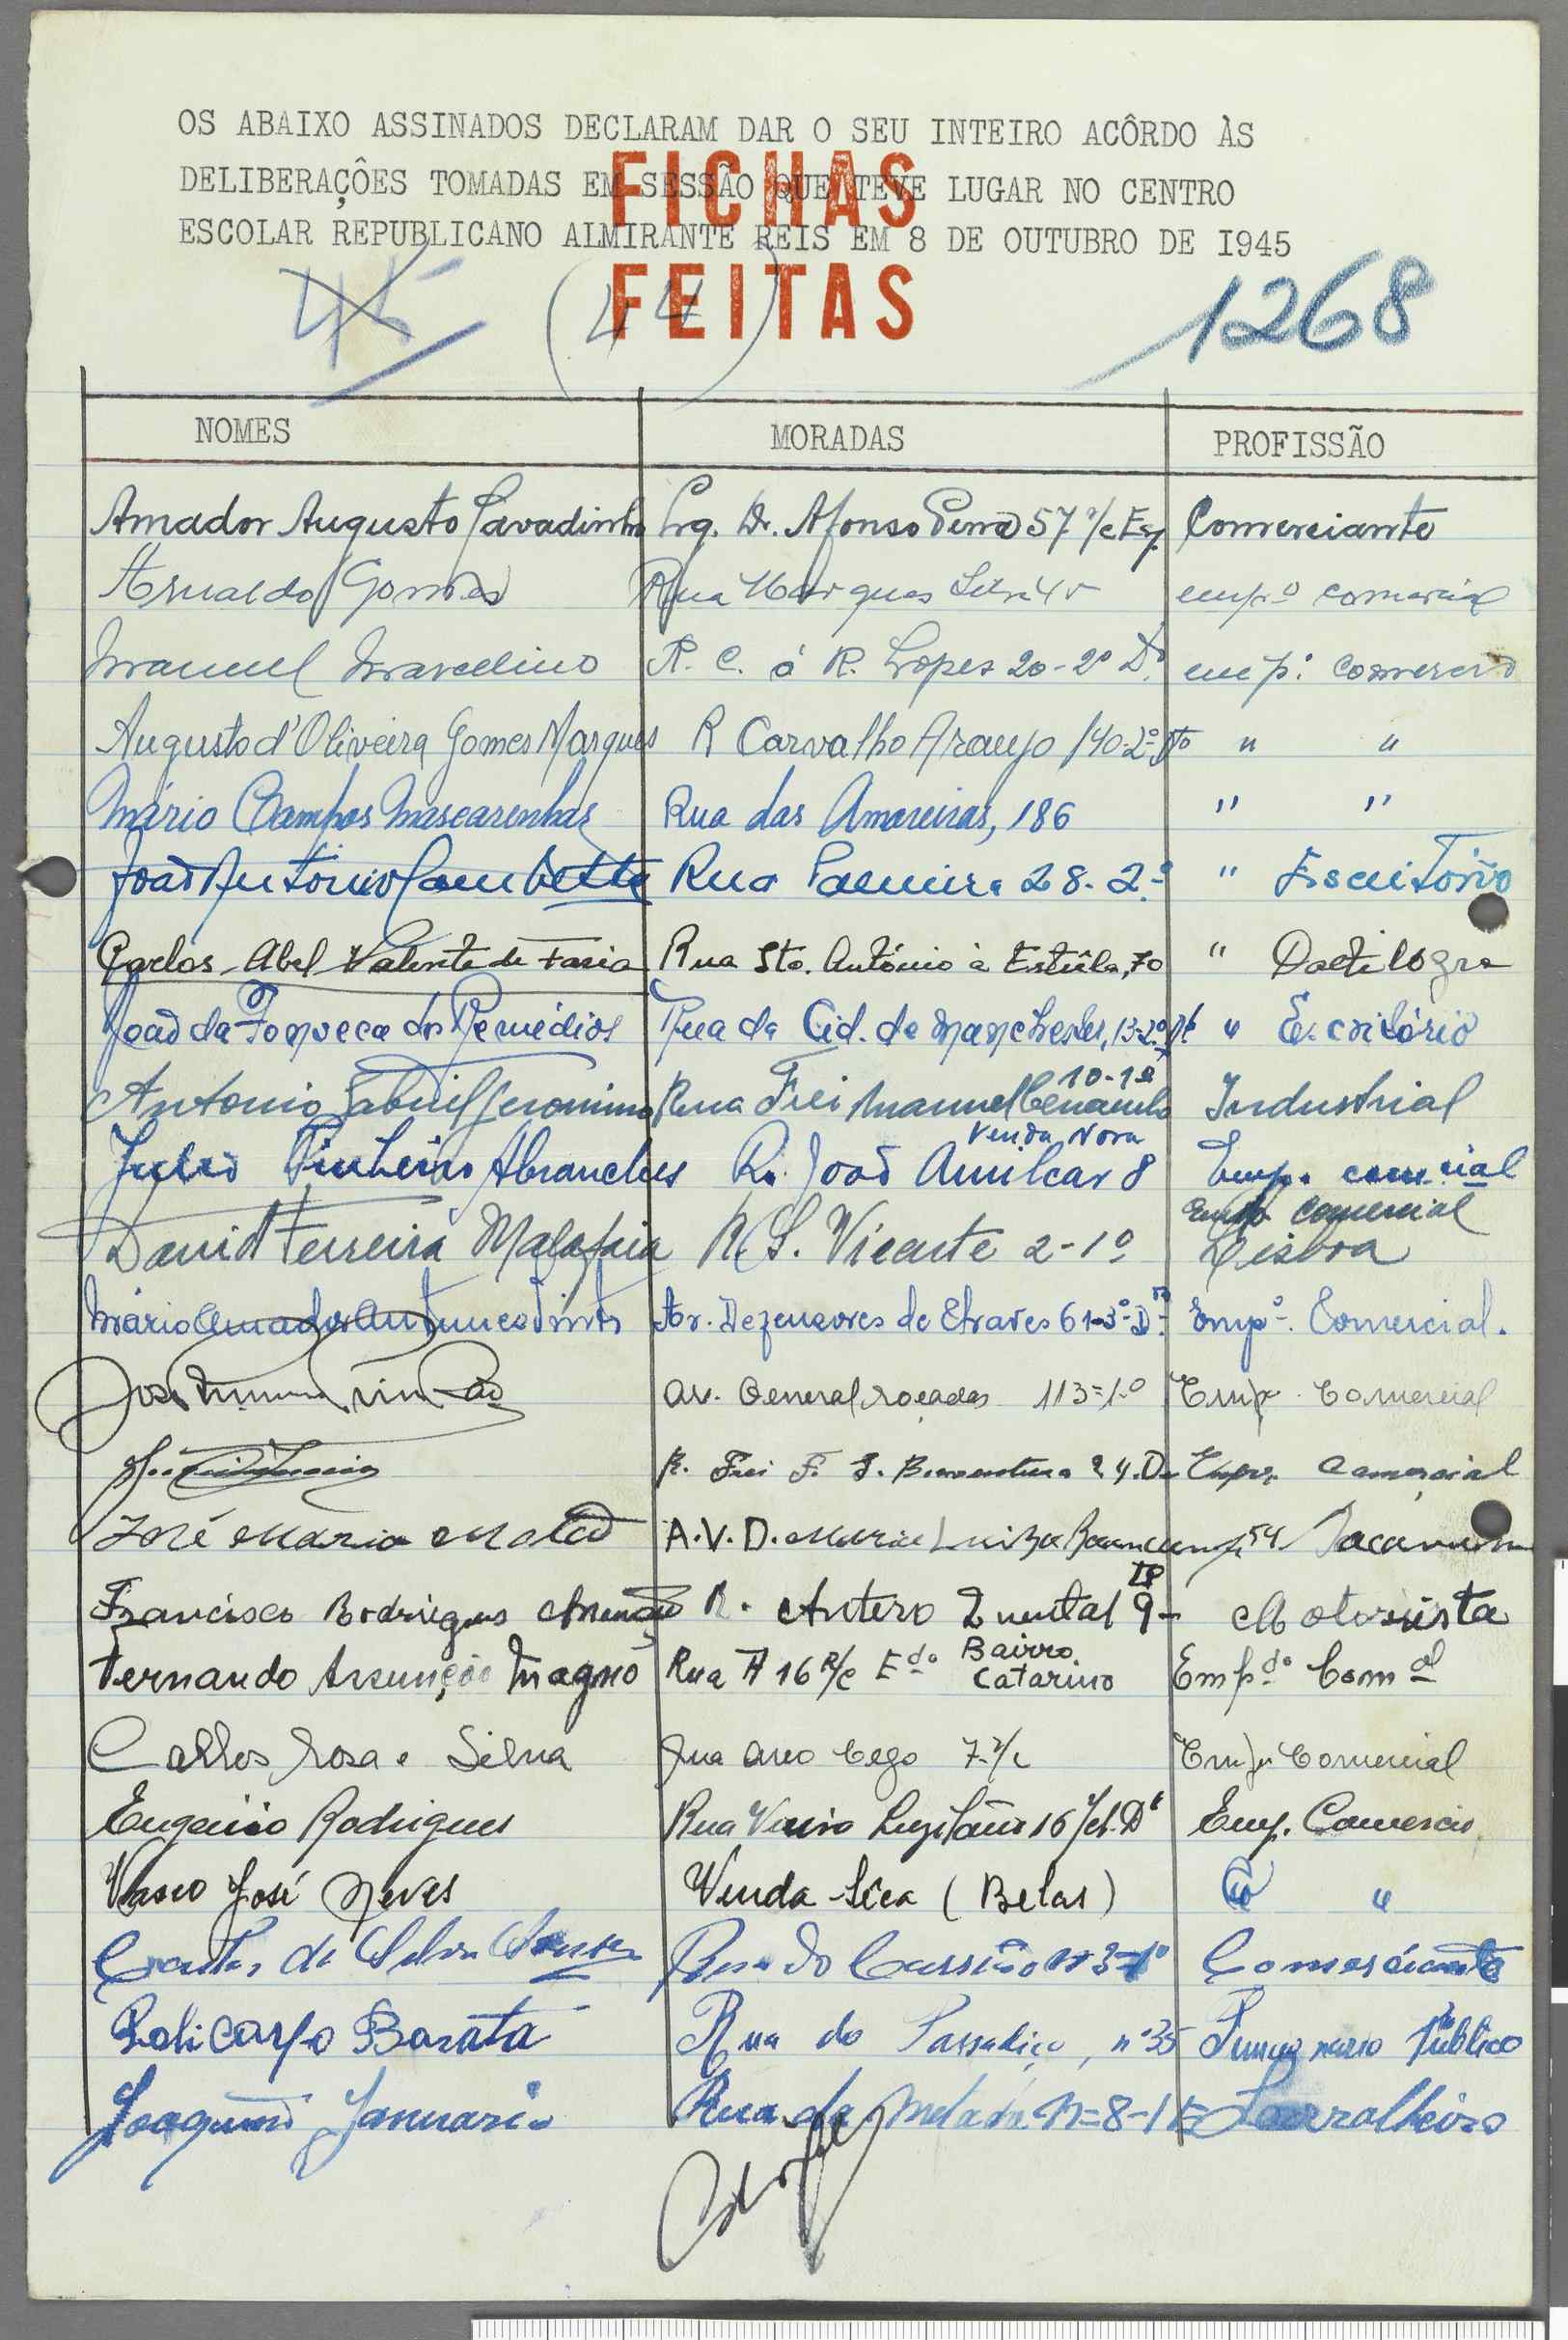 OS ABAIXO ASSINADOS DECLARAM DAR O SEU INTEIRO ACÔRDO ÀS
DELIBERAÇÕES TOMADAS EM SESSÃO QUE TEVE LUGAR NO CENTRO
ESCOLAR REPUBLICANO ALMIRANTE REIS EM 8 DE OUTUBRO DE I945
FICHAS
FEITAS
45 (44) 1268
NOMES MORADAS PROFISSÃO
Amador Augusto Cavadinho Lrg. Dr. Afonso Pena 57 r/c Esq. Comerciante
Arnaldo Gomes Rua Marques Silva empº comercial
Manuel Marcelino R. C. á R. Lopes 20-2º Dº emp: comercio
Augusto d'Oliveira Gomes Marques R Carvalho Araujo 140-2º Dto " "
Mário Campos Mascarenhas Rua das Amoreiras, 186 " "
João António Rua Palmira 28-2º " Escritório
Carlos Abel Valente de Faria Rua Sto. António à Estrêla, 70 " Dactilogra
João da Fonseca dos Remédios Rua da Cid. de Manchester, 13-2º Dt " Escritório
Antonio Gabriel Jeronimo Rua Frei Manuel Cenaculo 10-1º Industrial
Julio Pinheiro Abranches R. João Amilcar 8 Venda Nova Emp. comercial
David Ferreira Malafaia R. S. Vicente 2-1º Emp. Comercial Lisboa
Mário Amador Antunes Pinto Av. Defensores de Chaves 61-3º-Dº Empº. Comercial.
José Av. General roçadas 113=1º Emp. Comercial
R. Frei F. S. Boaventura 24.D. Empr. Comercial
José Maria A.V.D. Maria Luiza 54
Francisco Rodrigues R. Antero Quental 9- Motorista
Fernando Assunção Magno Rua A 16 R/c Edo Bairro Catarino Empdo Comal
Carlos Rosa e Silva Rua Arco Cego 7-r/c Emp. Comercial
Eugenio Rodrigues Rua Vieira Luzitano 16 Emp. Comercio
Vasco José Neves Venda Sêca (Belas) " "
da Silva Rua do Comerciante
Policarpo Barata Rua do Passadiço, nº 35 Funcionario Público
Joaquim Januario Rua da N=8-1 Serralheiro